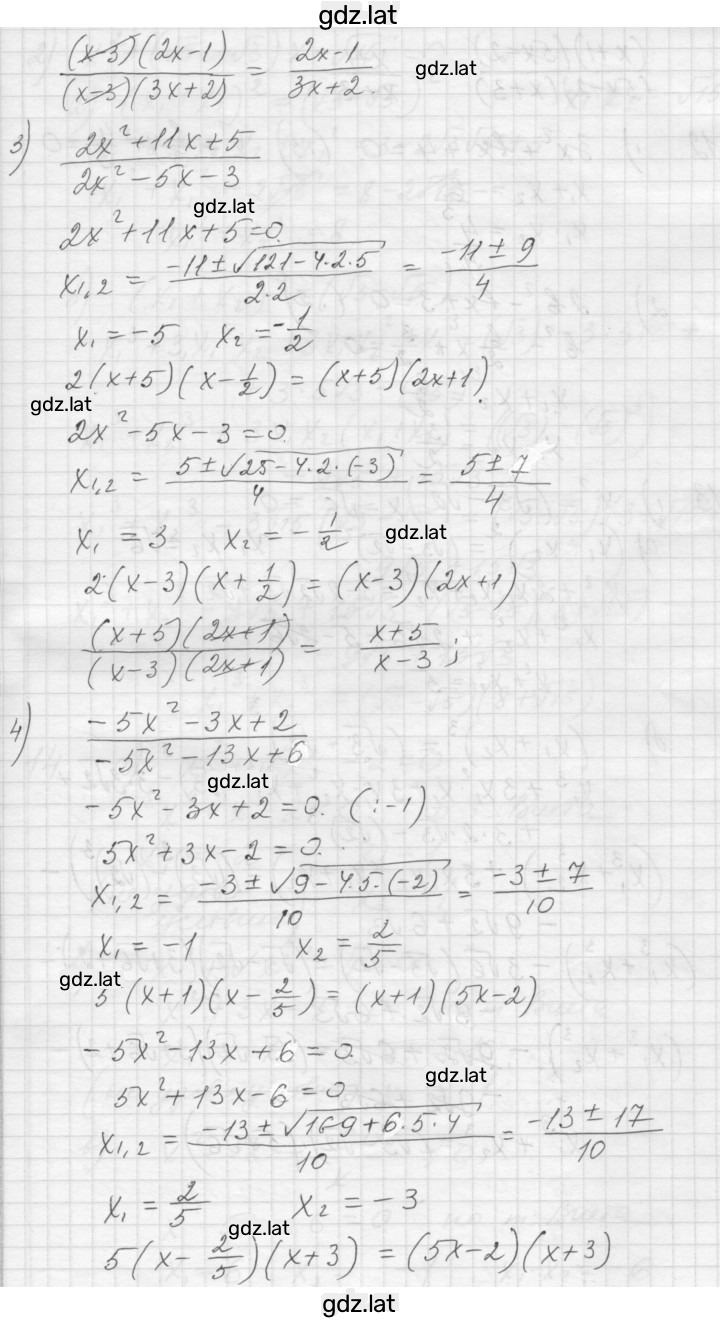 gdz.lat
(x-3)(2x-1) / (x-3)(3x+2) = 2x-1 / 3x+2. gdz.lat
3) 2x²+11x+5 / 2x²-5x-3
gdz.lat
2x²+11x+5=0.
x₁,₂ = -11±√121-4·2·5 / 2·2 = -11±9 / 4
x₁=-5 x₂=-1/2
2(x+5)(x-1/2)=(x+5)(2x+1).
gdz.lat
2x²-5x-3=0.
x₁,₂ = 5±√25-4·2·(-3) / 4 = 5±7 / 4
x₁=3 x₂=-1/2 gdz.lat
2·(x-3)(x+1/2)=(x-3)(2x+1)
(x+5)(2x+1) / (x-3)(2x+1) = x+5 / x-3;
4) -5x²-3x+2 / -5x²-13x+6
gdz.lat
-5x²-3x+2=0. (:-1)
5x²+3x-2=0.
x₁,₂ = -3±√9-4·5·(-2) / 10 = -3±7 / 10
x₁=-1 x₂=2/5
gdz.lat
5(x+1)(x-2/5)=(x+1)(5x-2)
-5x²-13x+6=0.
gdz.lat
5x²+13x-6=0
x₁,₂ = -13±√169+6·5·4 / 10 = -13±17 / 10
x₁=2/5 x₂=-3
gdz.lat
5(x-2/5)(x+3)=(5x-2)(x+3)
gdz.lat